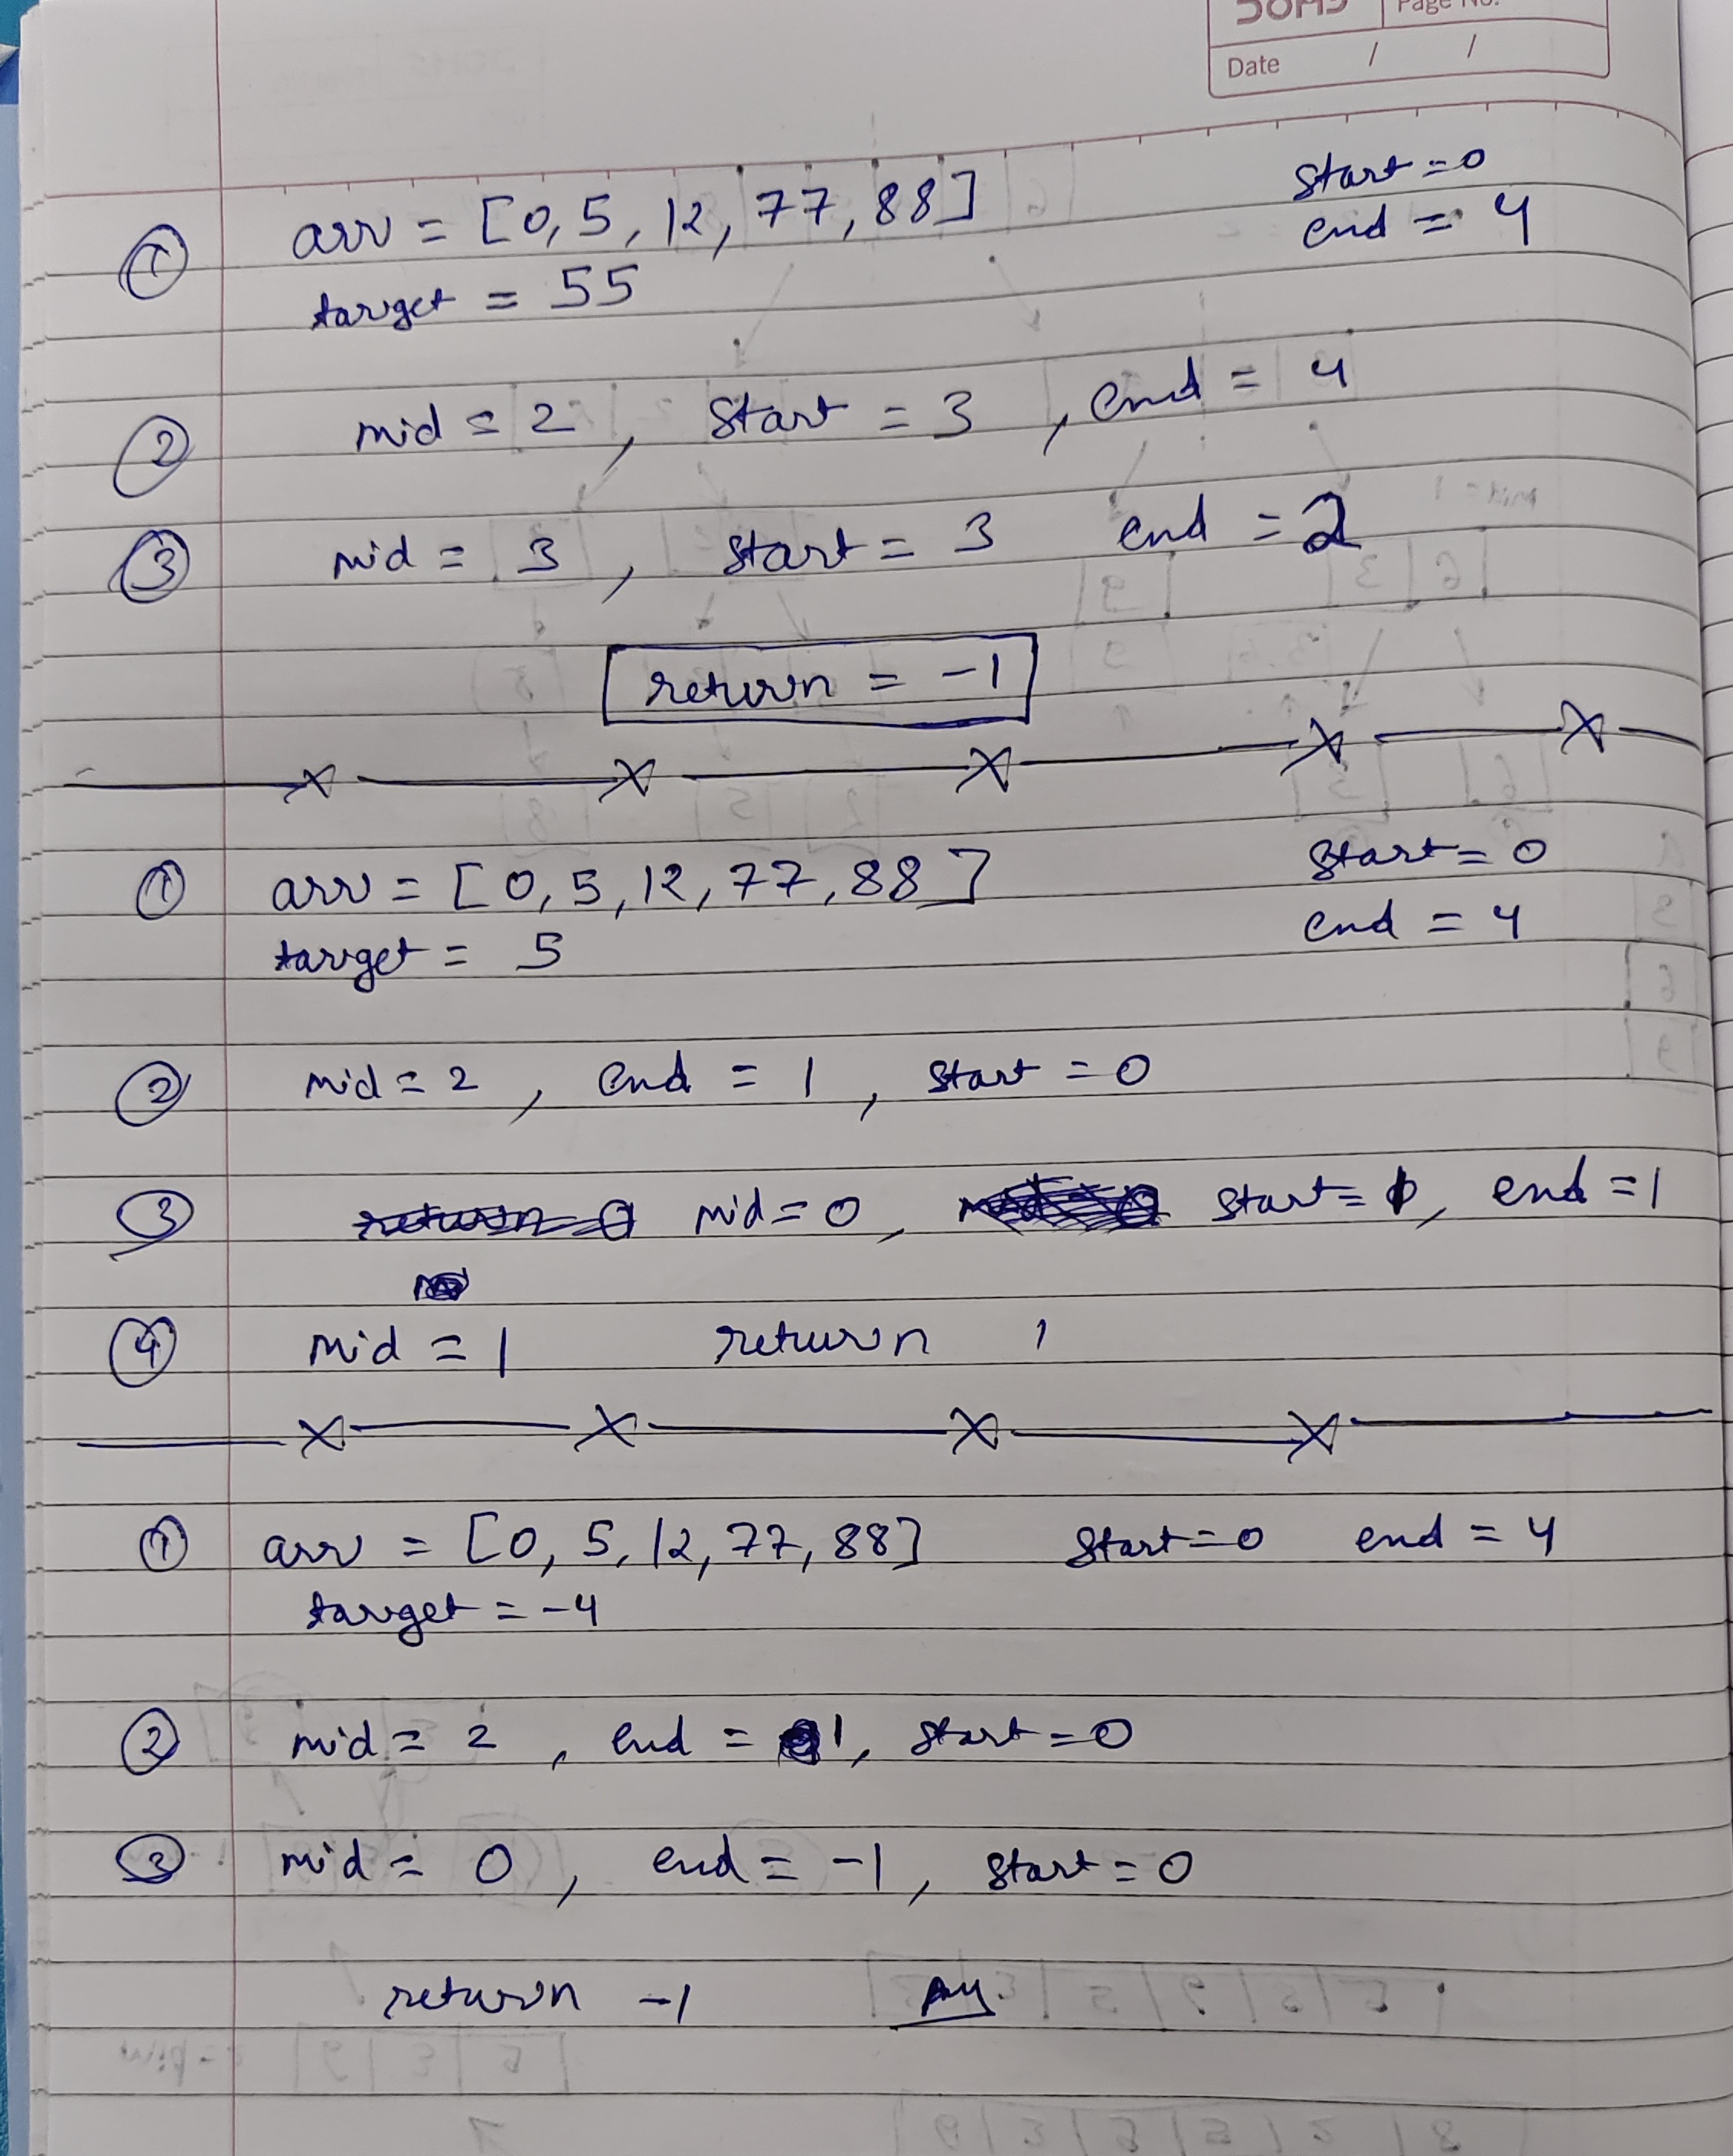 DOMS Page No.
Date / /
① arr = [0, 5, 12, 77, 88] start = 0
end = 4
target = 55
② mid = 2, start = 3, end = 4
③ mid = 3, start = 3 end = 2
return = -1
① arr = [0, 5, 12, 77, 88] start = 0
end = 4
target = 5
② mid = 2, end = 1, start = 0
③ return 0 mid = 0, start = 1, end = 1
④ mid = 1 return 1
① arr = [0, 5, 12, 77, 88] start = 0 end = 4
target = -4
② mid = 2, end = 1, start = 0
③ mid = 0, end = -1, start = 0
return -1 Ans